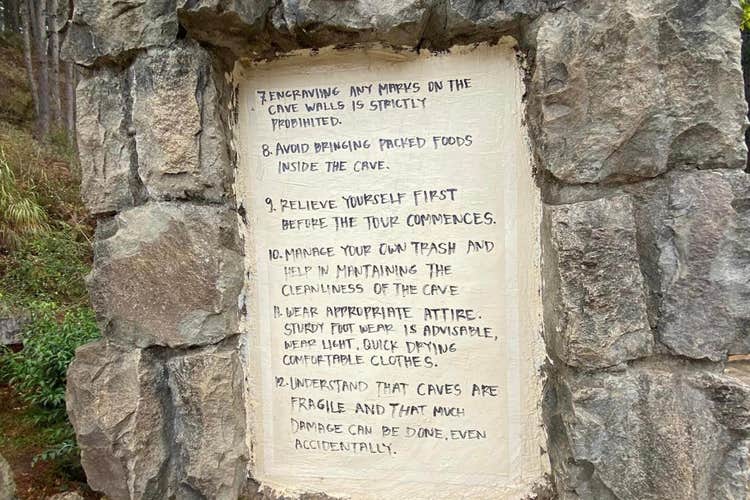 7. ENGRAVING ANY MARKS ON THE
CAVE WALLS IS STRICTLY
PROBIHITED.
8. AVOID BRINGING PACKED FOODS
INSIDE THE CAVE.
9. RELIEVE YOURSELF FIRST
BEFORE THE TOUR COMMENCES.
10. MANAGE YOUR OWN TRASH AND
HELP IN MANTAINING THE
CLEANLINESS OF THE CAVE
11. WEAR APPROPRIATE ATTIRE.
STURDY FOOT WEAR IS ADVISABLE,
WEAR LIGHT, QUICK DRYING
COMFORTABLE CLOTHES.
12. UNDERSTAND THAT CAVES ARE
FRAGILE AND THAT MUCH
DAMAGE CAN BE DONE, EVEN
ACCIDENTALLY.